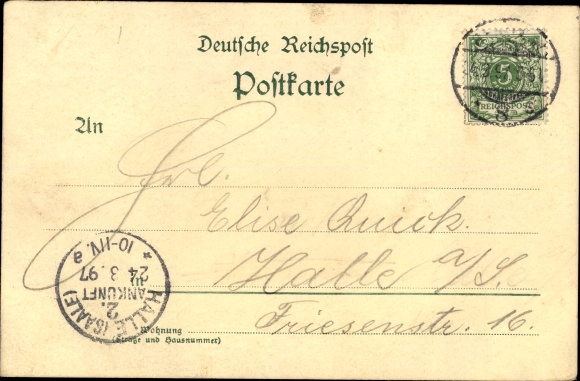 Deutsche Reichspost
Postkarte
5
REICHSPOST
An
Frl.
Elise Quick.
Halle a/S.
Friesenstr. 16.
Wohnung
(Straße und Hausnummer)
HALLE (SAALE)
2.
ANKUNFT
24 3. 97
10-11V. a